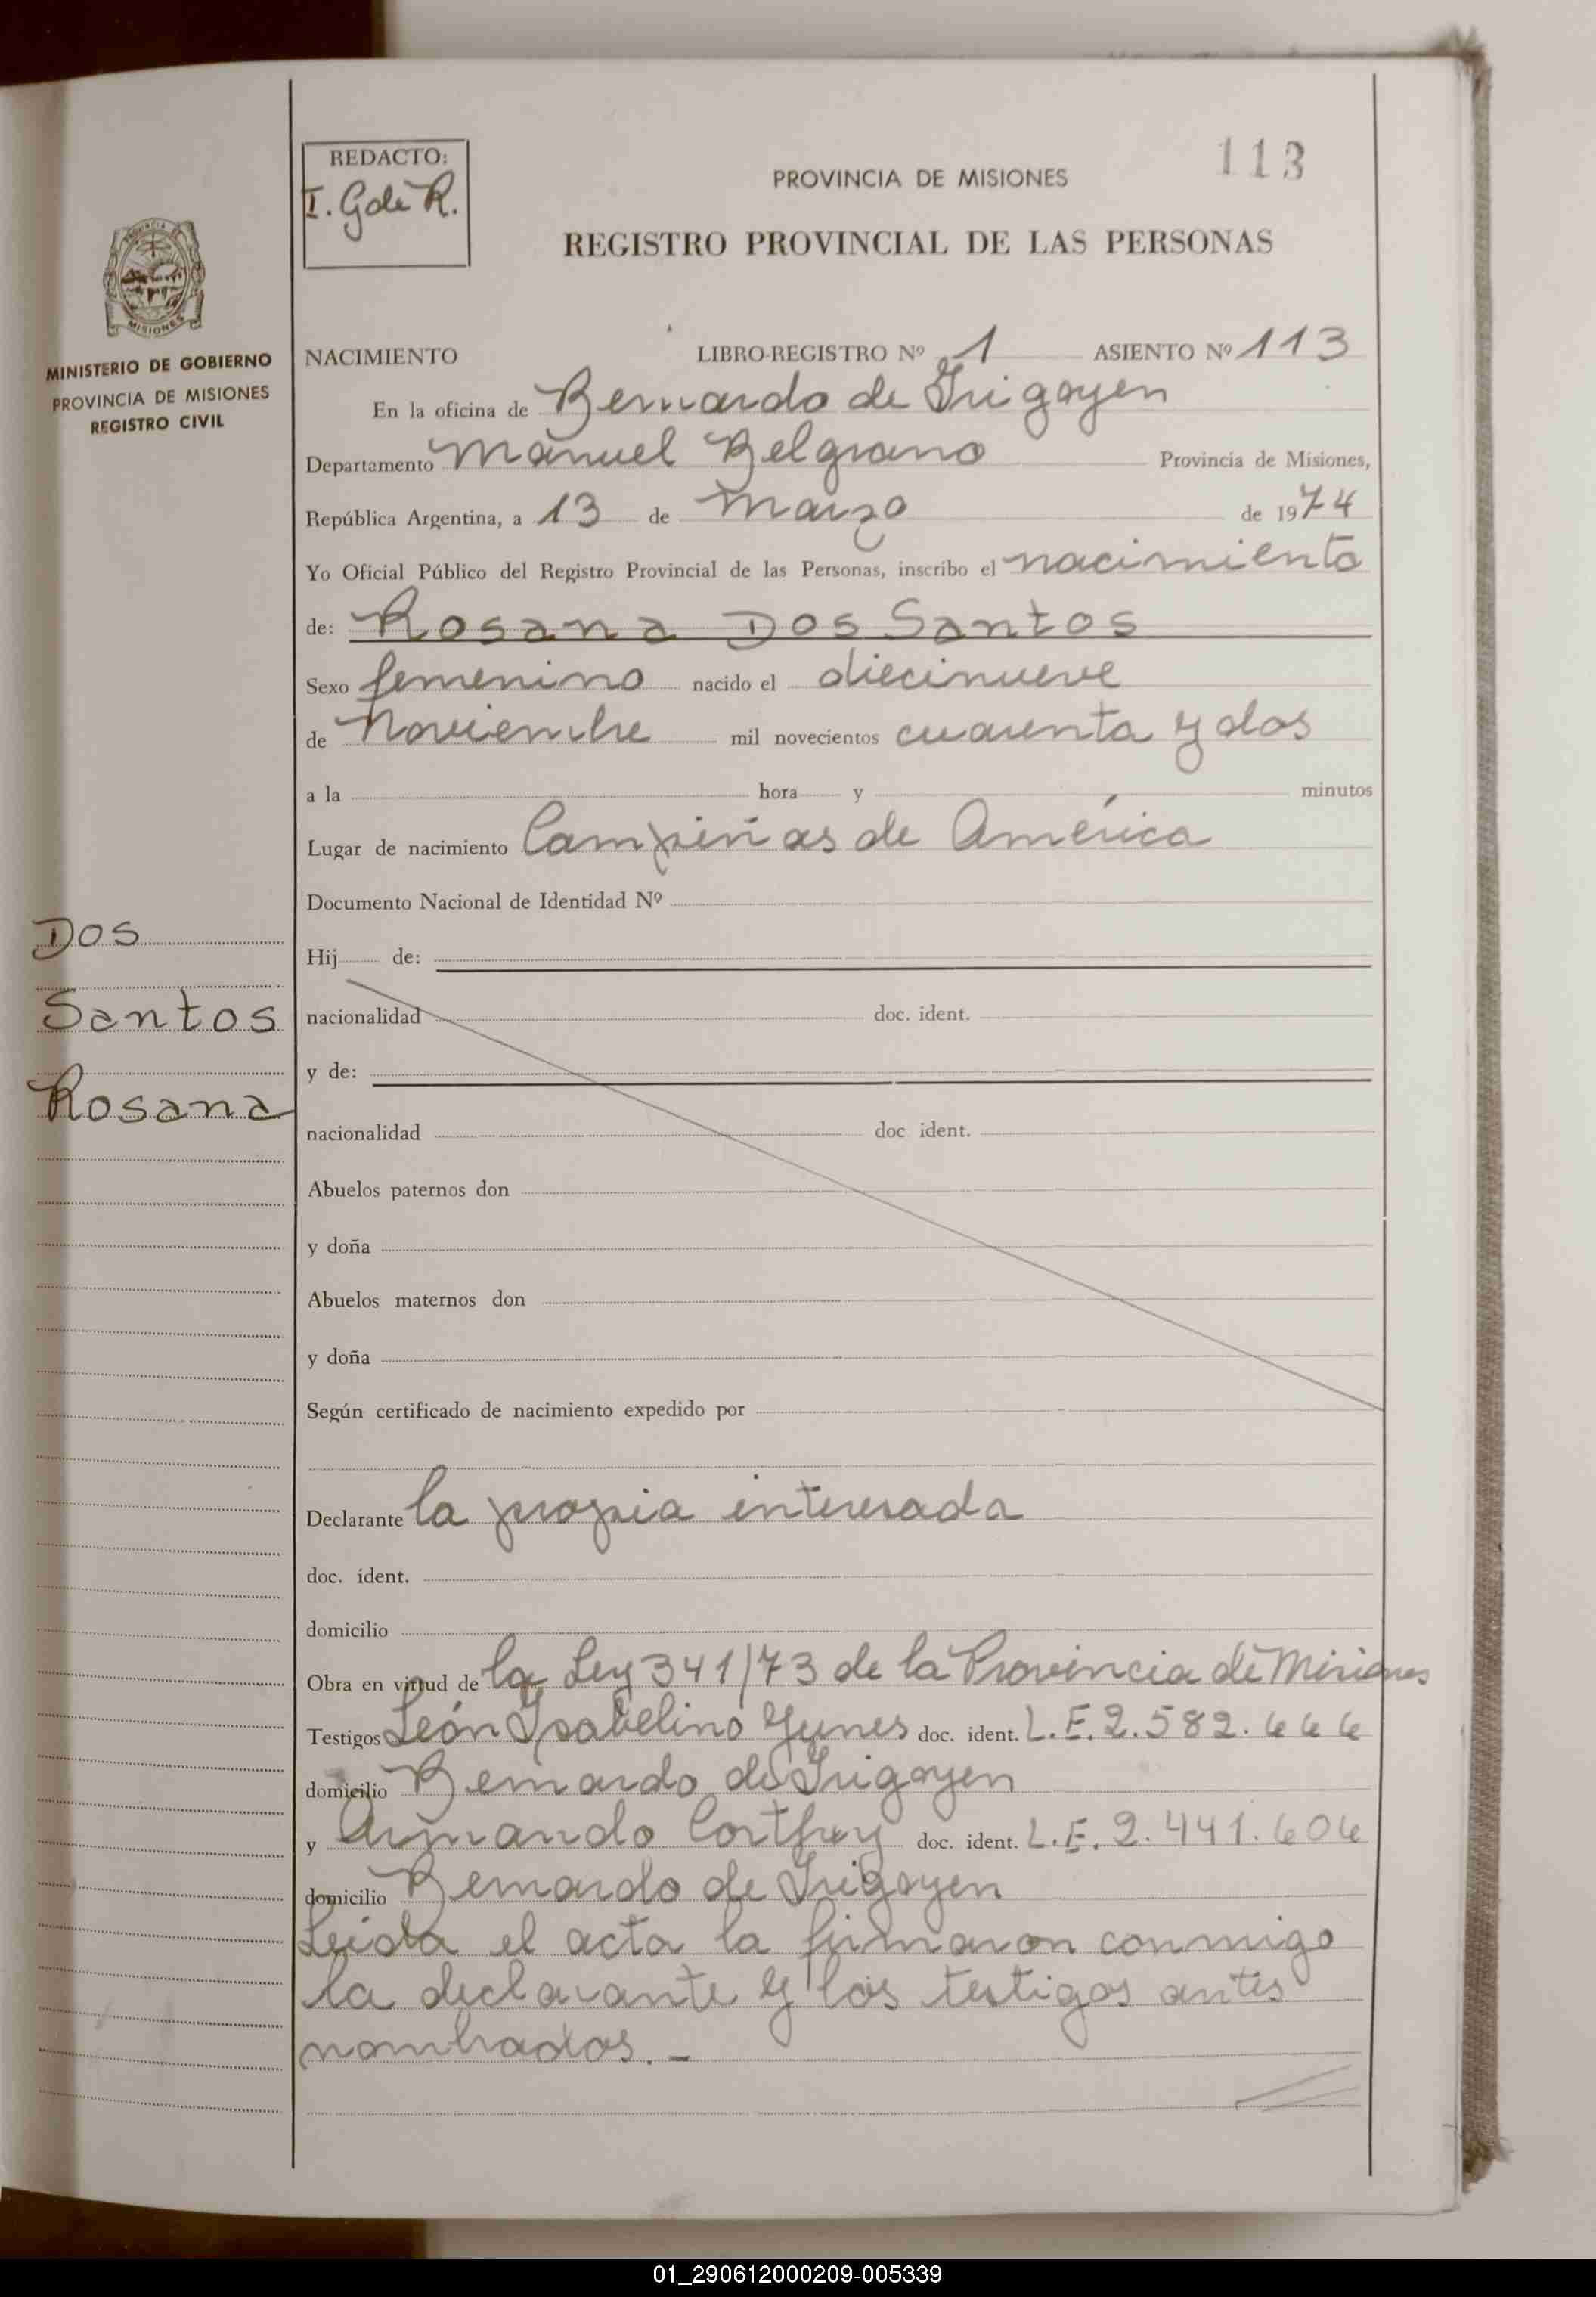 REDACTO:
I. G de R.
113
PROVINCIA DE MISIONES
REGISTRO PROVINCIAL DE LAS PERSONAS
PROVINCIA DE
MISIONES
MINISTERIO DE GOBIERNO
PROVINCIA DE MISIONES
REGISTRO CIVIL
NACIMIENTO LIBRO-REGISTRO Nº 1 ASIENTO Nº 113
En la oficina de Bernardo de Irigoyen
Departamento Manuel Belgrano Provincia de Misiones,
República Argentina, a 13 de Marzo de 1974
Yo Oficial Público del Registro Provincial de las Personas, inscribo el nacimiento
de: Rosana Dos Santos
Sexo femenino nacido el diecinueve
de Noviembre mil novecientos cuarenta y dos
a la hora y minutos
Lugar de nacimiento Campiñas de América
Documento Nacional de Identidad Nº
Dos
Santos
Rosana
Hij de:
nacionalidad doc. ident.
y de:
nacionalidad doc ident.
Abuelos paternos don
y doña
Abuelos maternos don
y doña
Según certificado de nacimiento expedido por
Declarante la propia interesada
doc. ident.
domicilio
Obra en virtud de la Ley 341/73 de la Provincia de Misiones
Testigos León Isabelino Yunes doc. ident. L.E. 2.582.666
domicilio Bernardo de Irigoyen
y Armando doc. ident. L.E. 2.441.606
domicilio Bernardo de Irigoyen
Leida el acta la firmaron conmigo
la declarante y los testigos antes
nombrados. -
01_290612000209-005339